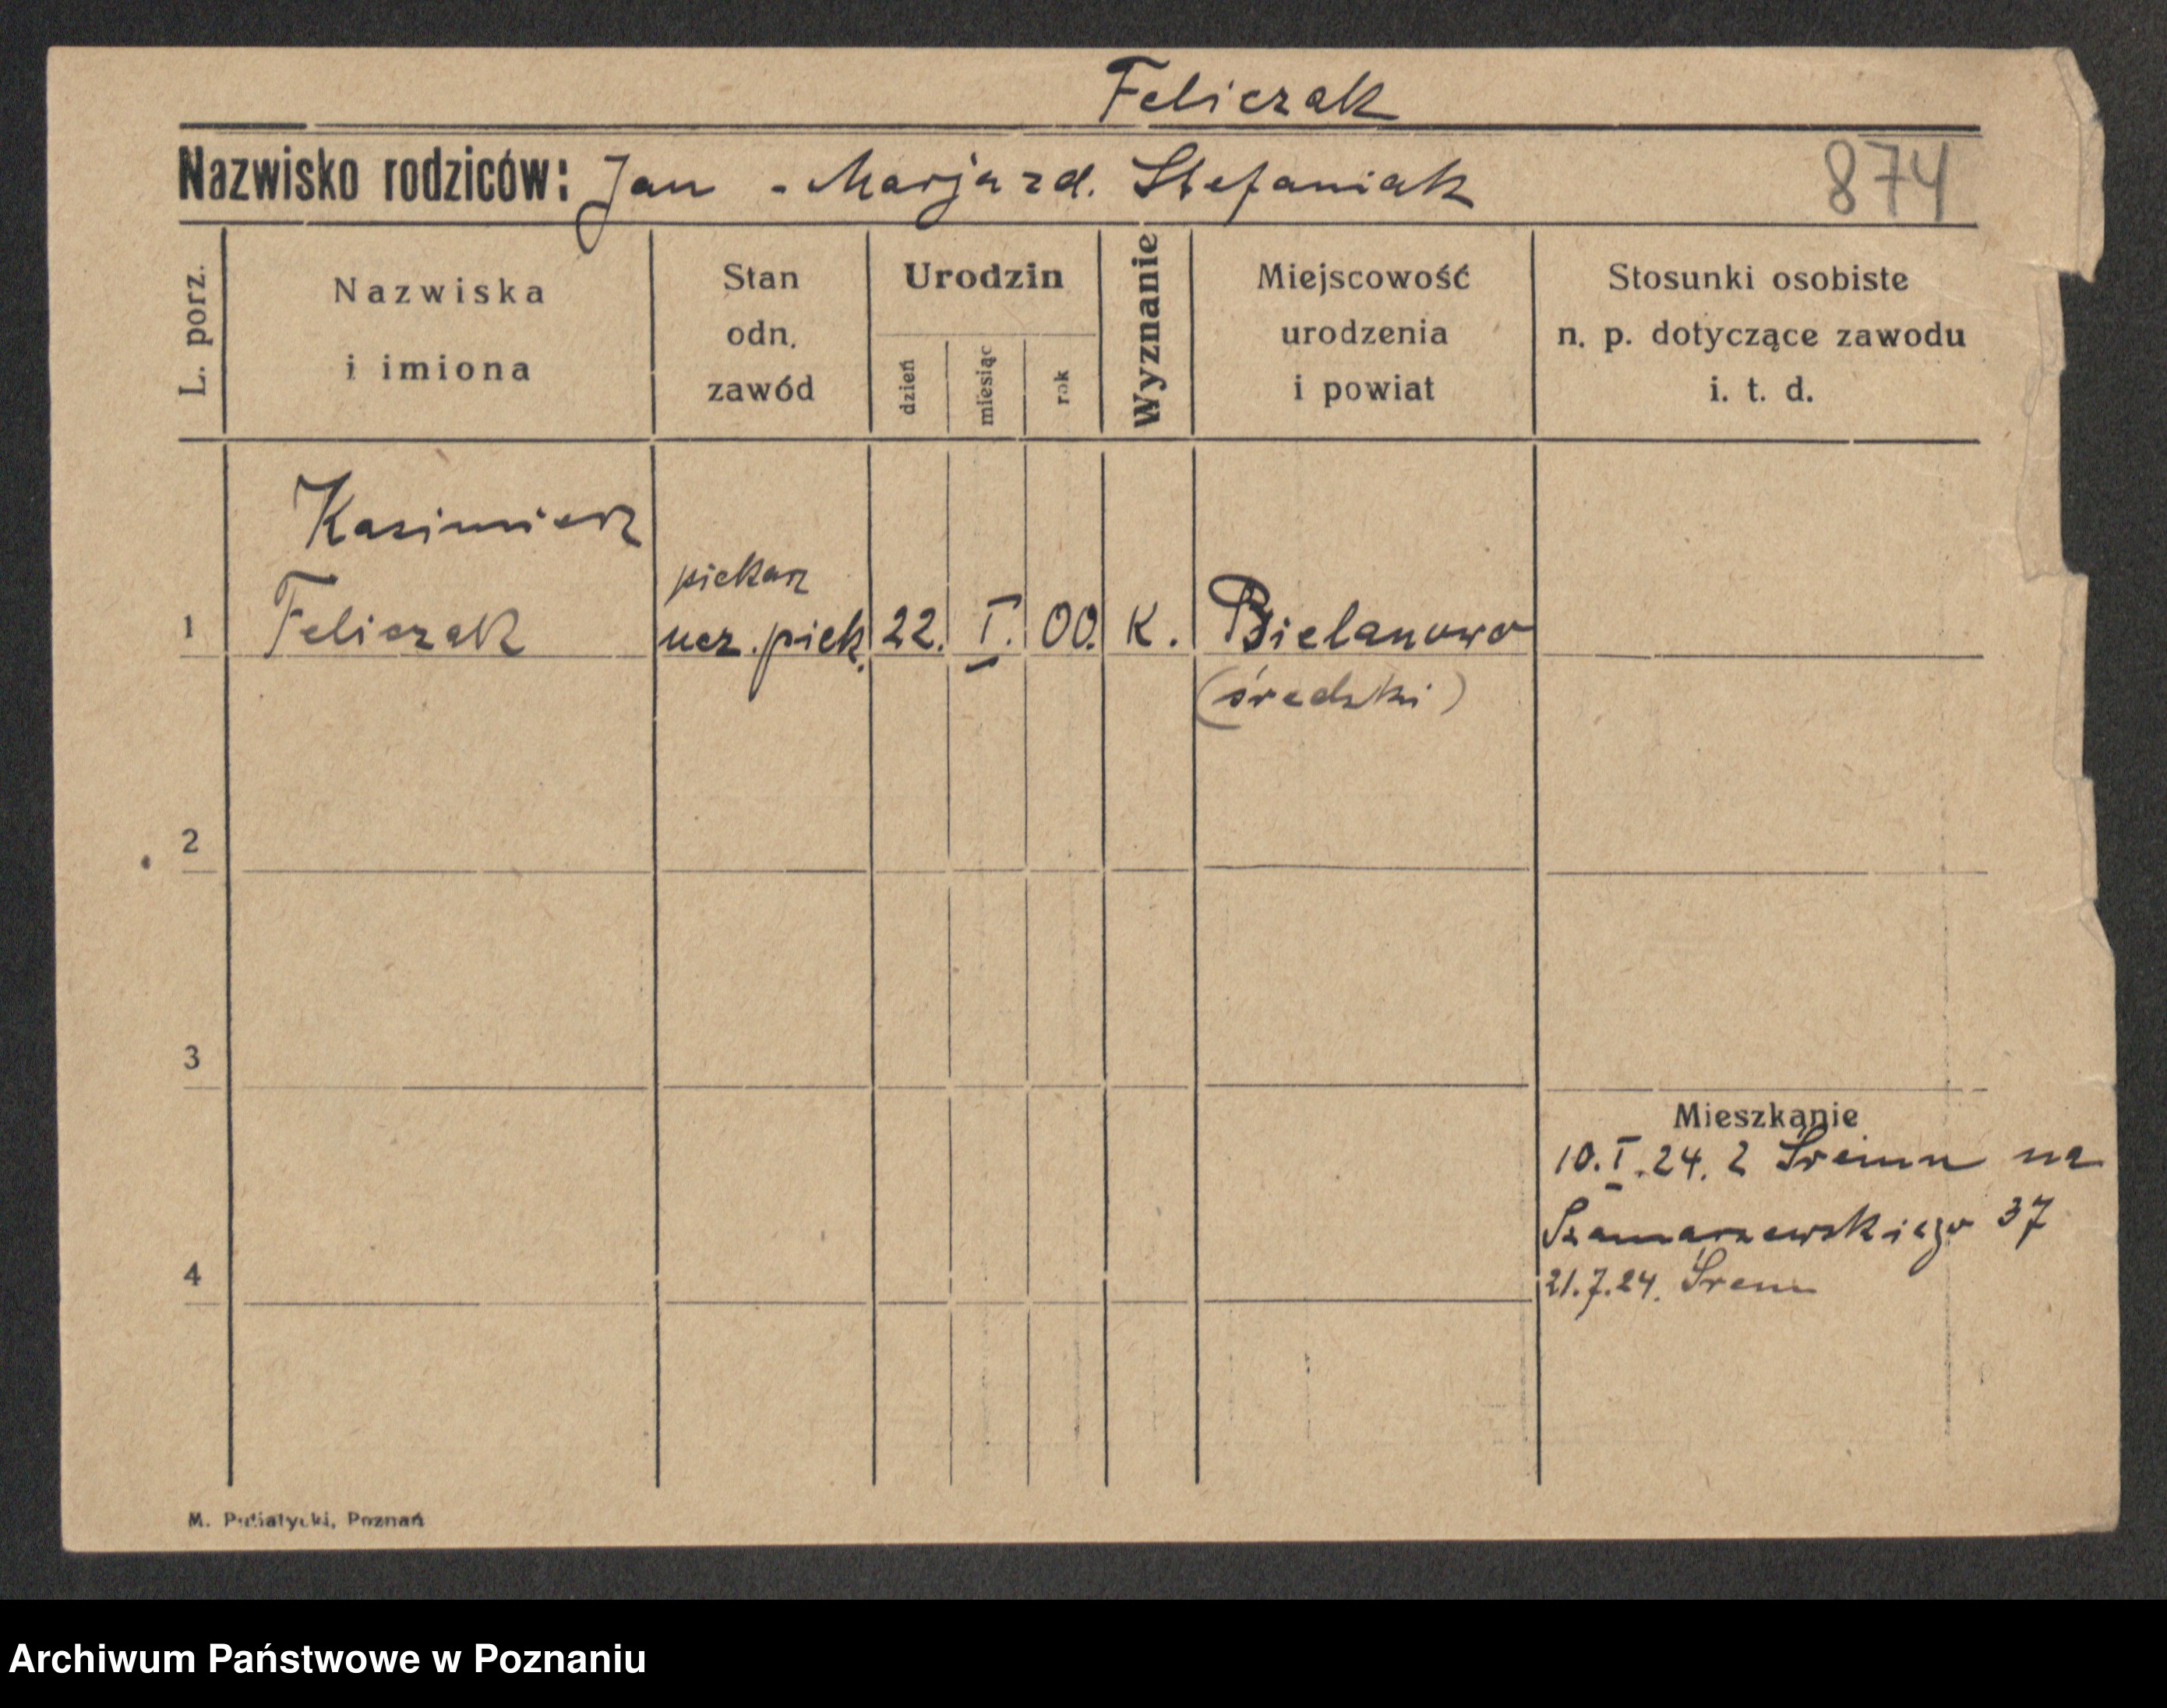 Feliczak
Nazwisko rodziców: Jan - Marja zd. Stefaniak 874
L. porz.
Nazwiska
i imiona
Stan
odn.
zawód
Urodzin
dzień
miesiąc
rok
Wyznanie
Miejscowość
urodzenia
i powiat
Stosunki osobiste
n. p. dotyczące zawodu
i. t. d.
Kazimierz
piekarz
1 Feliczak ucz. piek. 22. I. 00. K. Bielanowo
(średzki)
2
3
Mieszkanie
10. I. 24. z Śremu na
Szamarzewskiego 37
4 21.7.24. Śrem
M. Putiatycki, Poznań
Archiwum Państwowe w Poznaniu